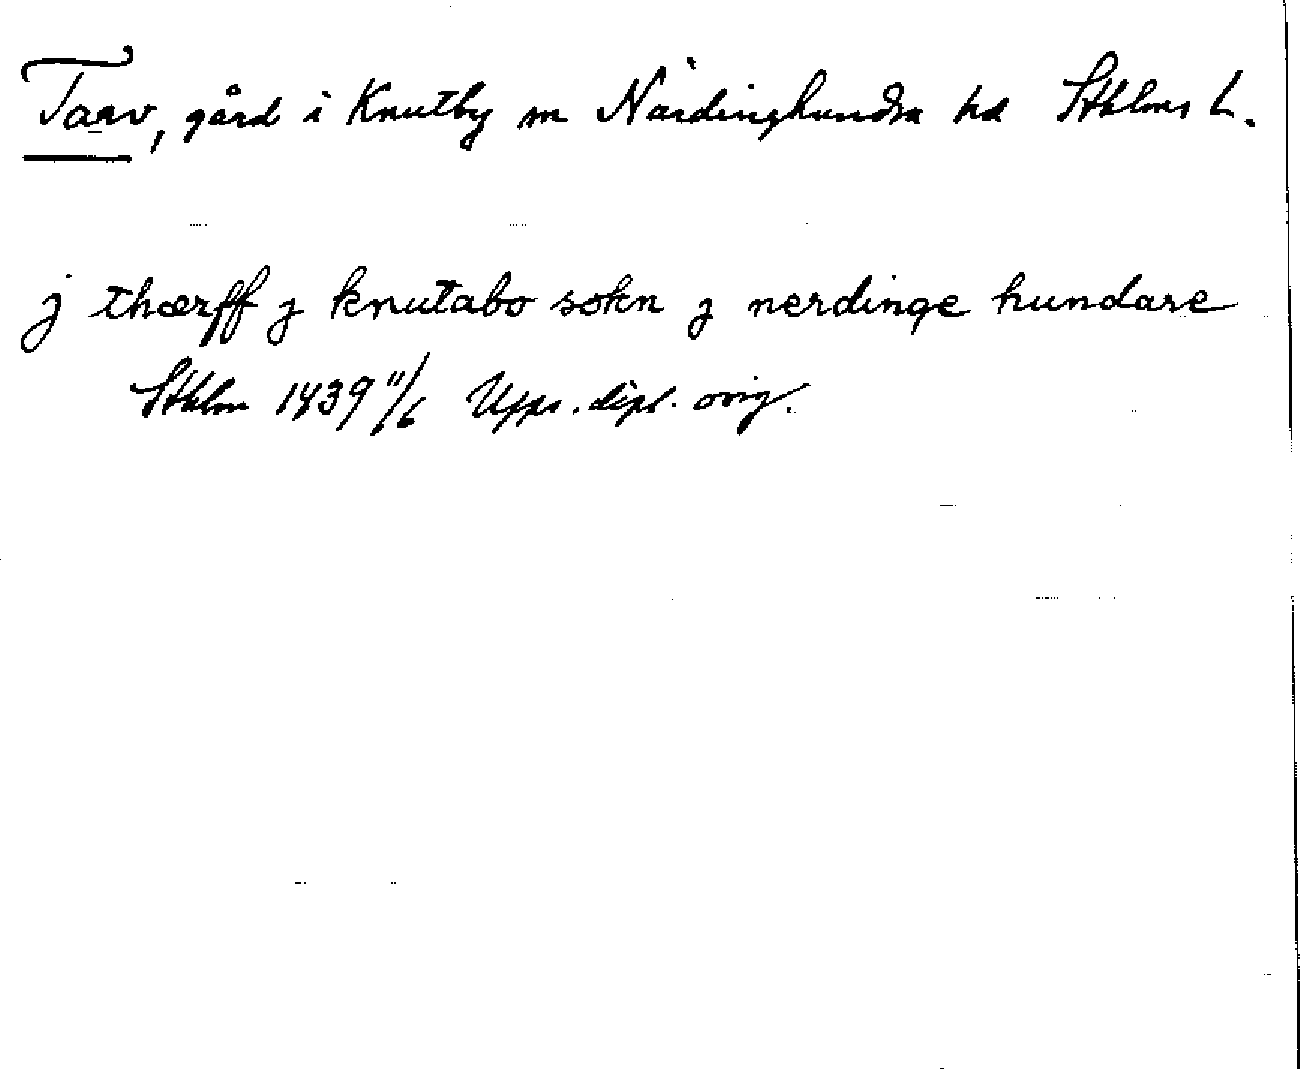 Tarv, gård i Knutby sn Närdinghundra hd Sthlms l.
j thærff j knutabo sokn j nerdinge hundare
Sthlm 1439 11/6 Upps. dipl. orig.